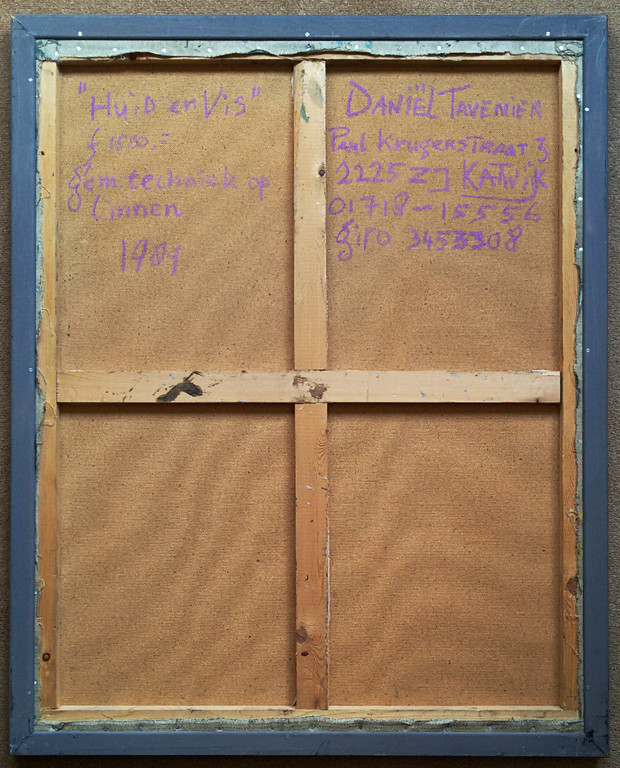 "Huid en Vis"
f 1500,=
gem. techniek op
linnen
1989
DANIËL TAVENIER
Paul Krugerstraat 3
2225 ZJ KATWIJK
01718-15556
giro 3453308